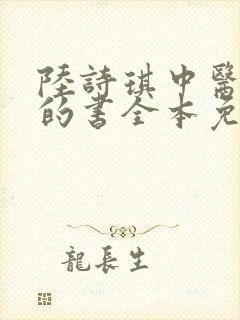 陸詩琪中醫
的書全本免
龍長生